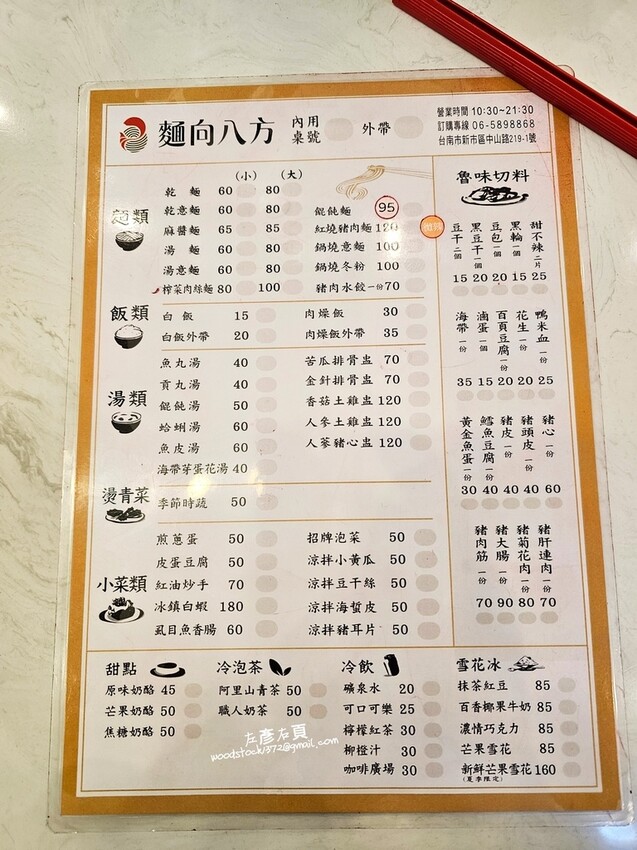 麵向八方 內用 桌號 外帶
營業時間 10:30~21:30
訂購專線 06-5898868
台南市新市區中山路219-1號
麵類
(小) (大)
乾麵 60 80
乾意麵 60 80
麻醬麵 65 85
湯麵 60 80
湯意麵 60 80
榨菜肉絲麵 80 100
餛飩麵 95
紅燒豬肉麵 120
鍋燒意麵 100
鍋燒冬粉 100
豬肉水餃 一份 70
飯類
白飯 15
白飯外帶 20
肉燥飯 30
肉燥飯外帶 35
湯類
魚丸湯 40
貢丸湯 40
餛飩湯 50
蛤蜊湯 60
魚皮湯 60
海帶芽蛋花湯 40
苦瓜排骨盅 70
金針排骨盅 70
香菇土雞盅 120
人參土雞盅 120
人蔘豬心盅 120
燙青菜
季節時蔬 50
小菜類
煎蔥蛋 50
皮蛋豆腐 50
紅油炒手 70
冰鎮白蝦 180
虱目魚香腸 60
招牌泡菜 50
涼拌小黃瓜 50
涼拌豆干絲 50
涼拌海蜇皮 50
涼拌豬耳片 50
魯味切料
豆干 二個 15
黑豆干 一個 20
豆包 一個 20
黑輪 一個 15
甜不辣 二片 25
海帶 一份 35
滷蛋 一個 15
百頁豆腐 一份 20
花生 一份 20
鴨米血 一份 25
黃金魚蛋 一份 30
鱈魚豆腐 一份 40
豬皮 一份 40
豬頭皮 一份 40
豬心 一份 60
豬肉筋 一份 70
豬大腸 一份 90
豬菊花肉 一份 80
豬肝連肉 一份 70
甜點
原味奶酪 45
芒果奶酪 50
焦糖奶酪 50
冷泡茶
阿里山青茶 50
職人奶茶 50
冷飲
礦泉水 20
可口可樂 25
檸檬紅茶 30
柳橙汁 30
咖啡廣場 30
雪花冰
抹茶紅豆 85
百香椰果牛奶 85
濃情巧克力 85
芒果雪花 85
新鮮芒果雪花 160
(夏季限定)
左彥右頁
woodstock1372@gmail.com